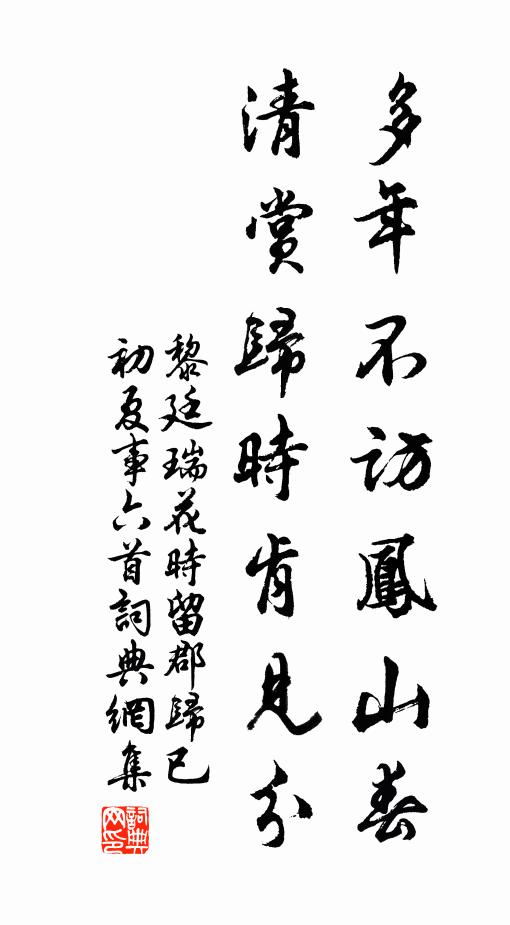 多年不訪鳳山春
清賞歸時肯見分
黎廷瑞花時留郡歸已
初夏事六首詞典網集
詞典网印